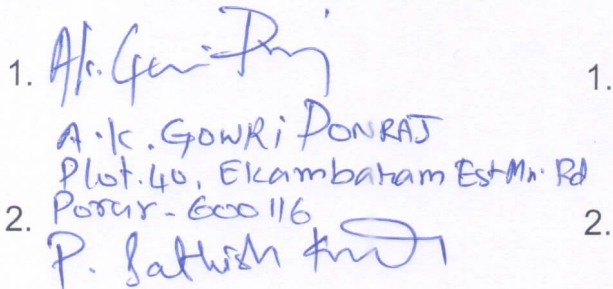 1. A.K. Gowri Ponraj 1.
A.K. GOWRi PONRAJ
Plot.40, Ekambaram Est Mn. Rd
2. Porur - 600 116 2.
P. Sathish Kumar